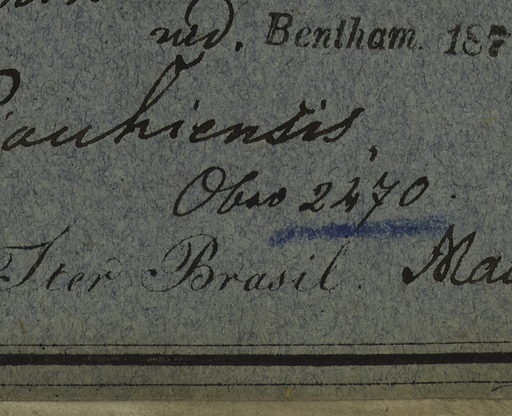 red. Bentham. 187
Piauhiensis,
Obs. 2470.
Iter Brasil. Mar